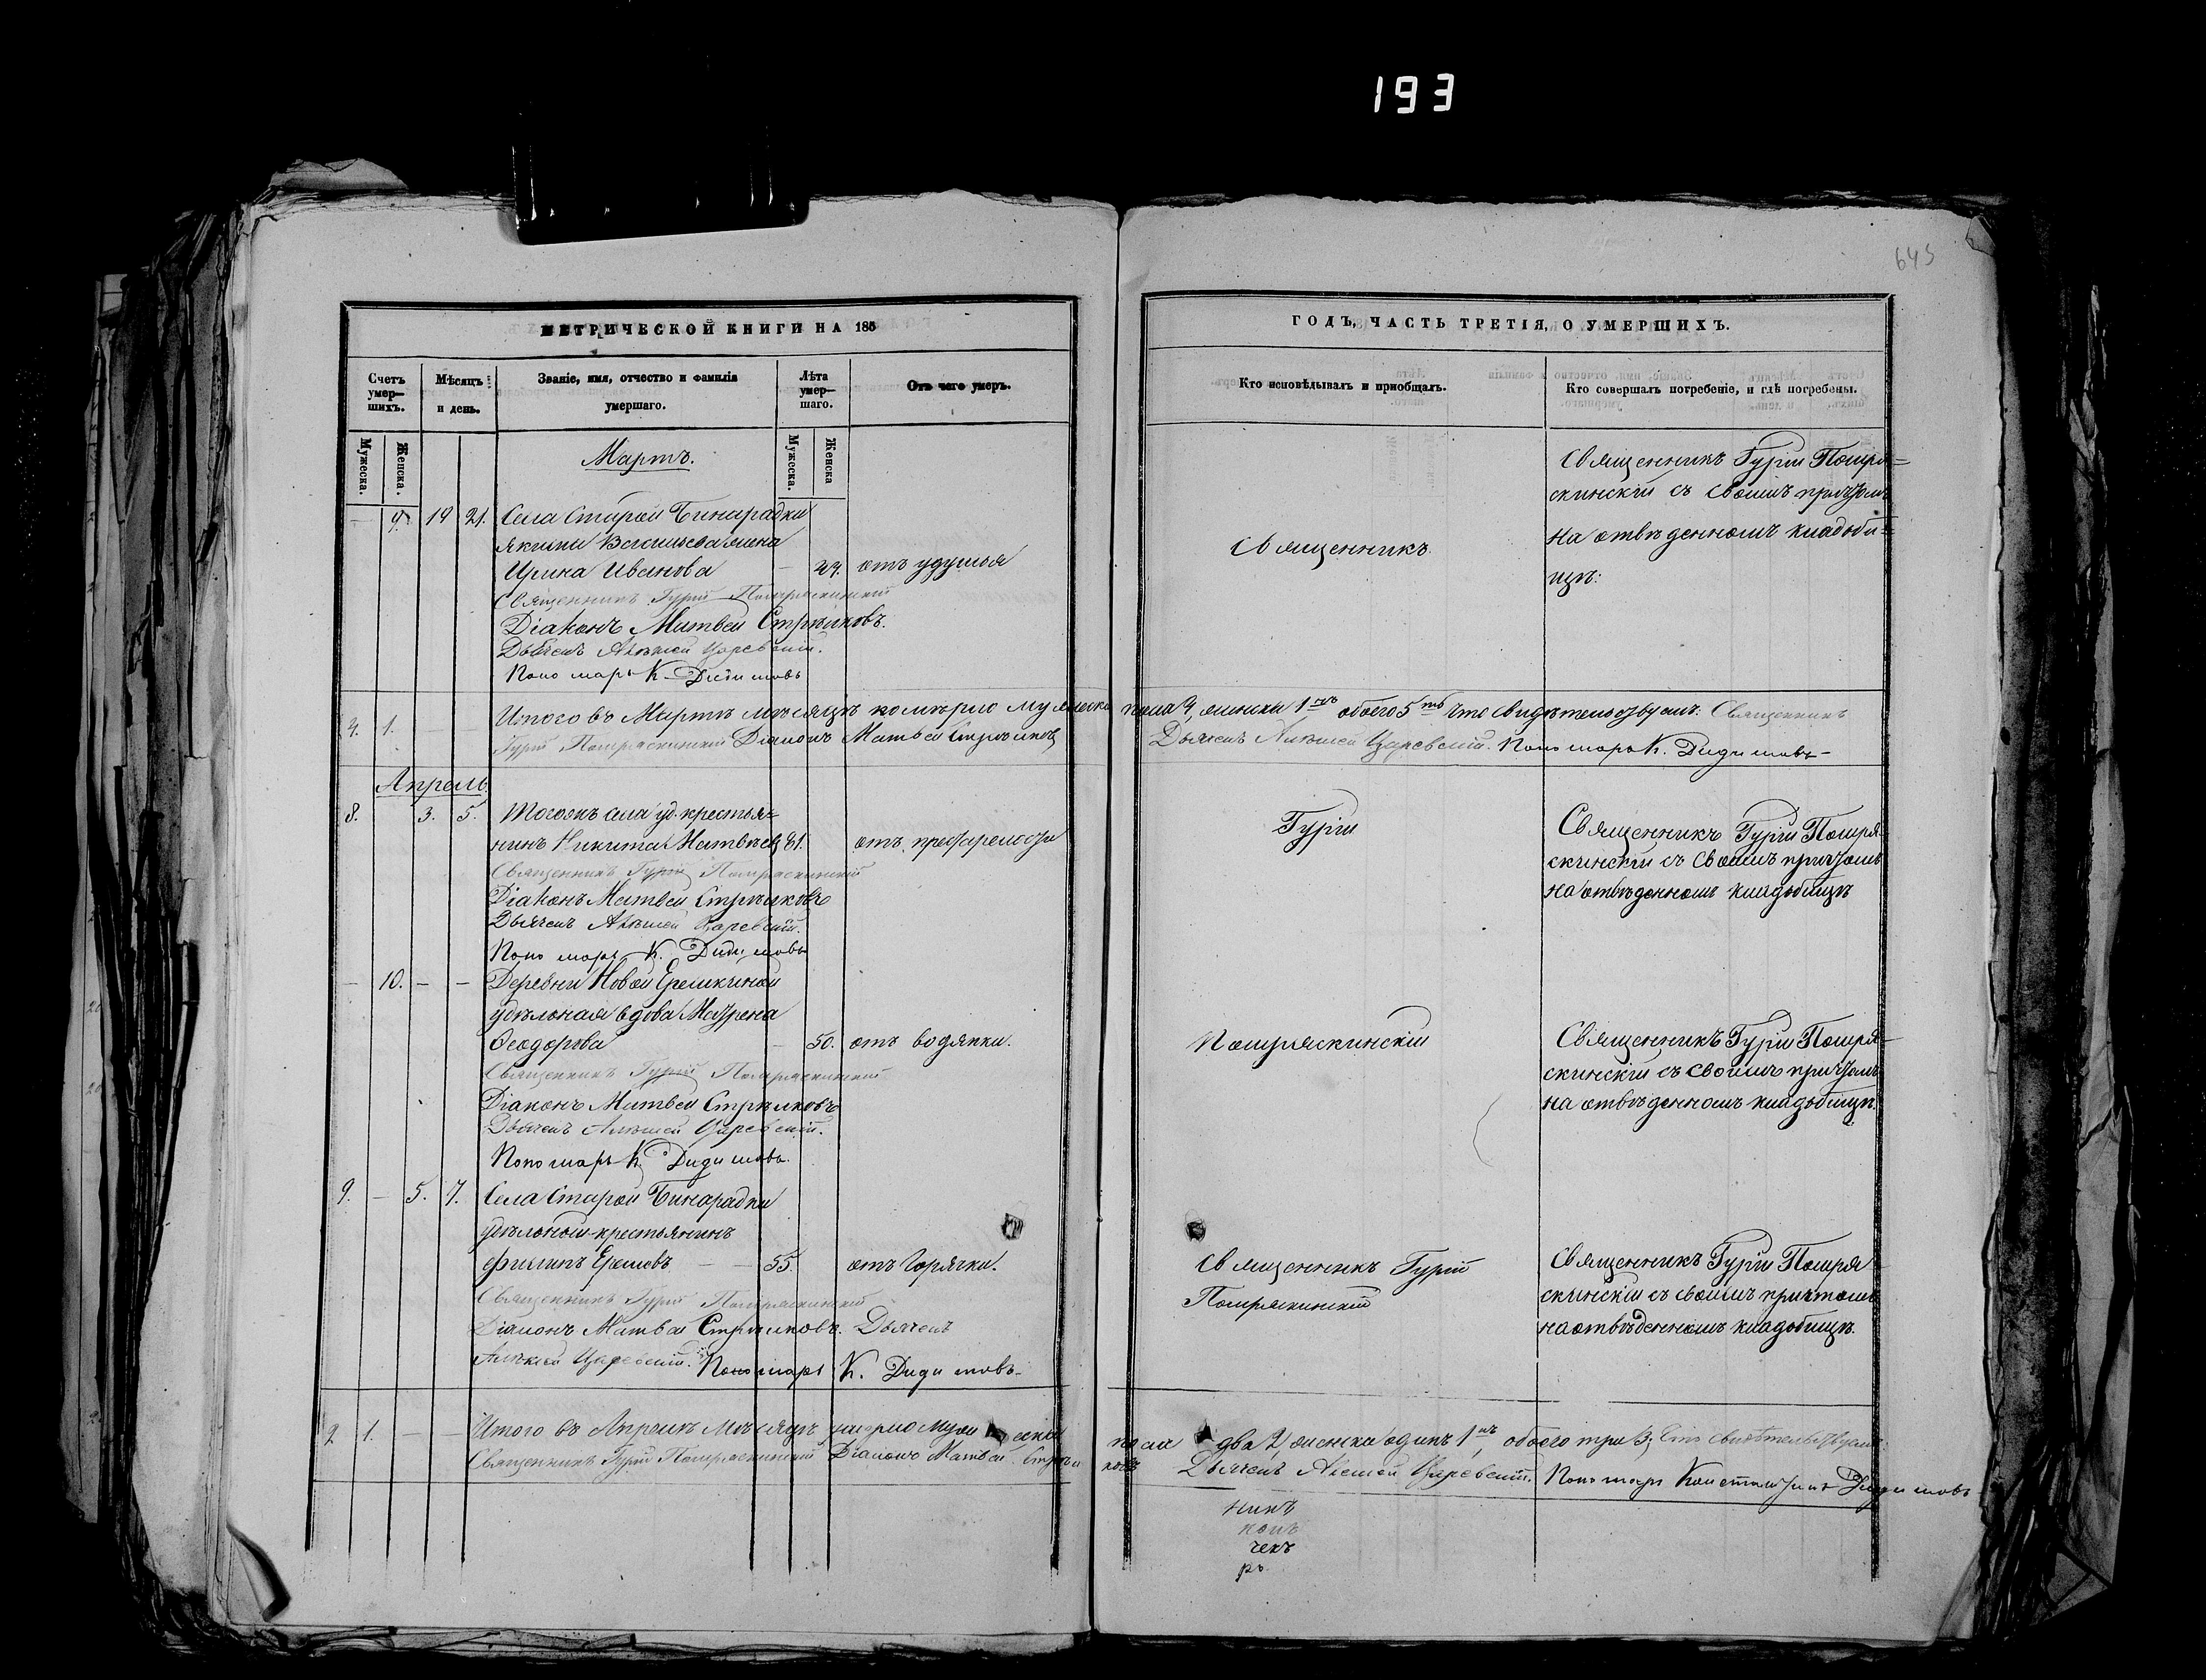 193
645
МЕТРИЧЕСКОЙ КНИГИ НА 185
ГОДЪ, ЧАСТЬ ТРЕТІЯ, О УМЕРШИХЪ.
Счетъ умер—шихъ.
Мѣсяцъ и день.
Званіе, имя, отчество и фамилія умершаго.
Лѣта умер—шаго.
Отъ чего умеръ.
Кто исповѣдывалъ и пріобщалъ.
Кто совершалъ погребеніе, и гдѣ погребены.
Мужеска.
Женска.
Мужеска.
Женска
Мартъ.
— 9. 19 21. Села Старой Бинарадки
жена
Ирина Иванова — отъ удушья
Священникъ Гурій Помряскинскій
Діаконъ Матвей Стрѣлковъ.
Дьячекъ Алексей Царевскій.
Пономарь К. Дидимовъ
Священникъ
Священникъ Гурій Помря=
скинскій съ своимъ причтомъ
на отвѣденномъ кладби=
щѣ:
4. 1. — Итого въ Мартѣ мѣсяцѣ померло мужеска пола 4, женска 1нъ обоего 5ть Что свидѣтельствуемъ: Священникъ
Гурій Помряскинскій Діаконъ Матвей Стрѣлковъ Дьячекъ Алексей Царевскій. Пономарь К. Дидимовъ—
Апрель.
8. 3. 5. Тогожъ села уд. крестья=
нинъ Никита Матвѣев 81. отъ престарелости
Священникъ Гурій Помряскинскій
Діаконъ Матвей Стрѣлковъ
Дьячекъ Алексей Царевскій.
Пономарь К. Дидимовъ
Гурій
Священникъ Гурій Помря
скинскій съ своимъ причтомъ
на отвѣденномъ кладбищѣ
— 10. — — Деревни Новой Еремкиной
удѣльная вдова Маѵрена
Ѳеодорова — 50. отъ водянки.
Священникъ Гурій Помряскинскій
Діаконъ Матвей Стрѣлковъ
Дьячекъ Алексей Царевскій.
Пономарь К. Дидимовъ.
Помряскинскій
Священникъ Гурій Помря=
скинскій съ своимъ причтомъ
на отвѣденномъ кладбищѣ.
9. — 5. 7. Села Старой Бинарадки
удѣльный крестьянинъ
Филипъ — — 55. отъ горячки.
Священникъ Гурій Помряскинскій
Діаконъ Матвей Стрѣлковъ. Дьячекъ
Алексей Царевскій. Пономарь К. Дидимовъ.
Священникъ Гурій
Помряскинскій
Священникъ Гурій Помря
скинскій съ своимъ причтомъ
на отвѣденномъ кладбищѣ.
2 1. — — Итого въ Апрелѣ мѣсяцѣ умерло мужеска пола два 2, женска одинъ 1нъ, обоего три 3; Что свидѣтельствуемъ:
Священникъ Гурій Помряскинскій Діаконъ Матвей Стрѣлковъ Дьячекъ Алексей Царевскій. Пономарь Константинъ Дидимовъ
никъ
конъ
чекъ
рь